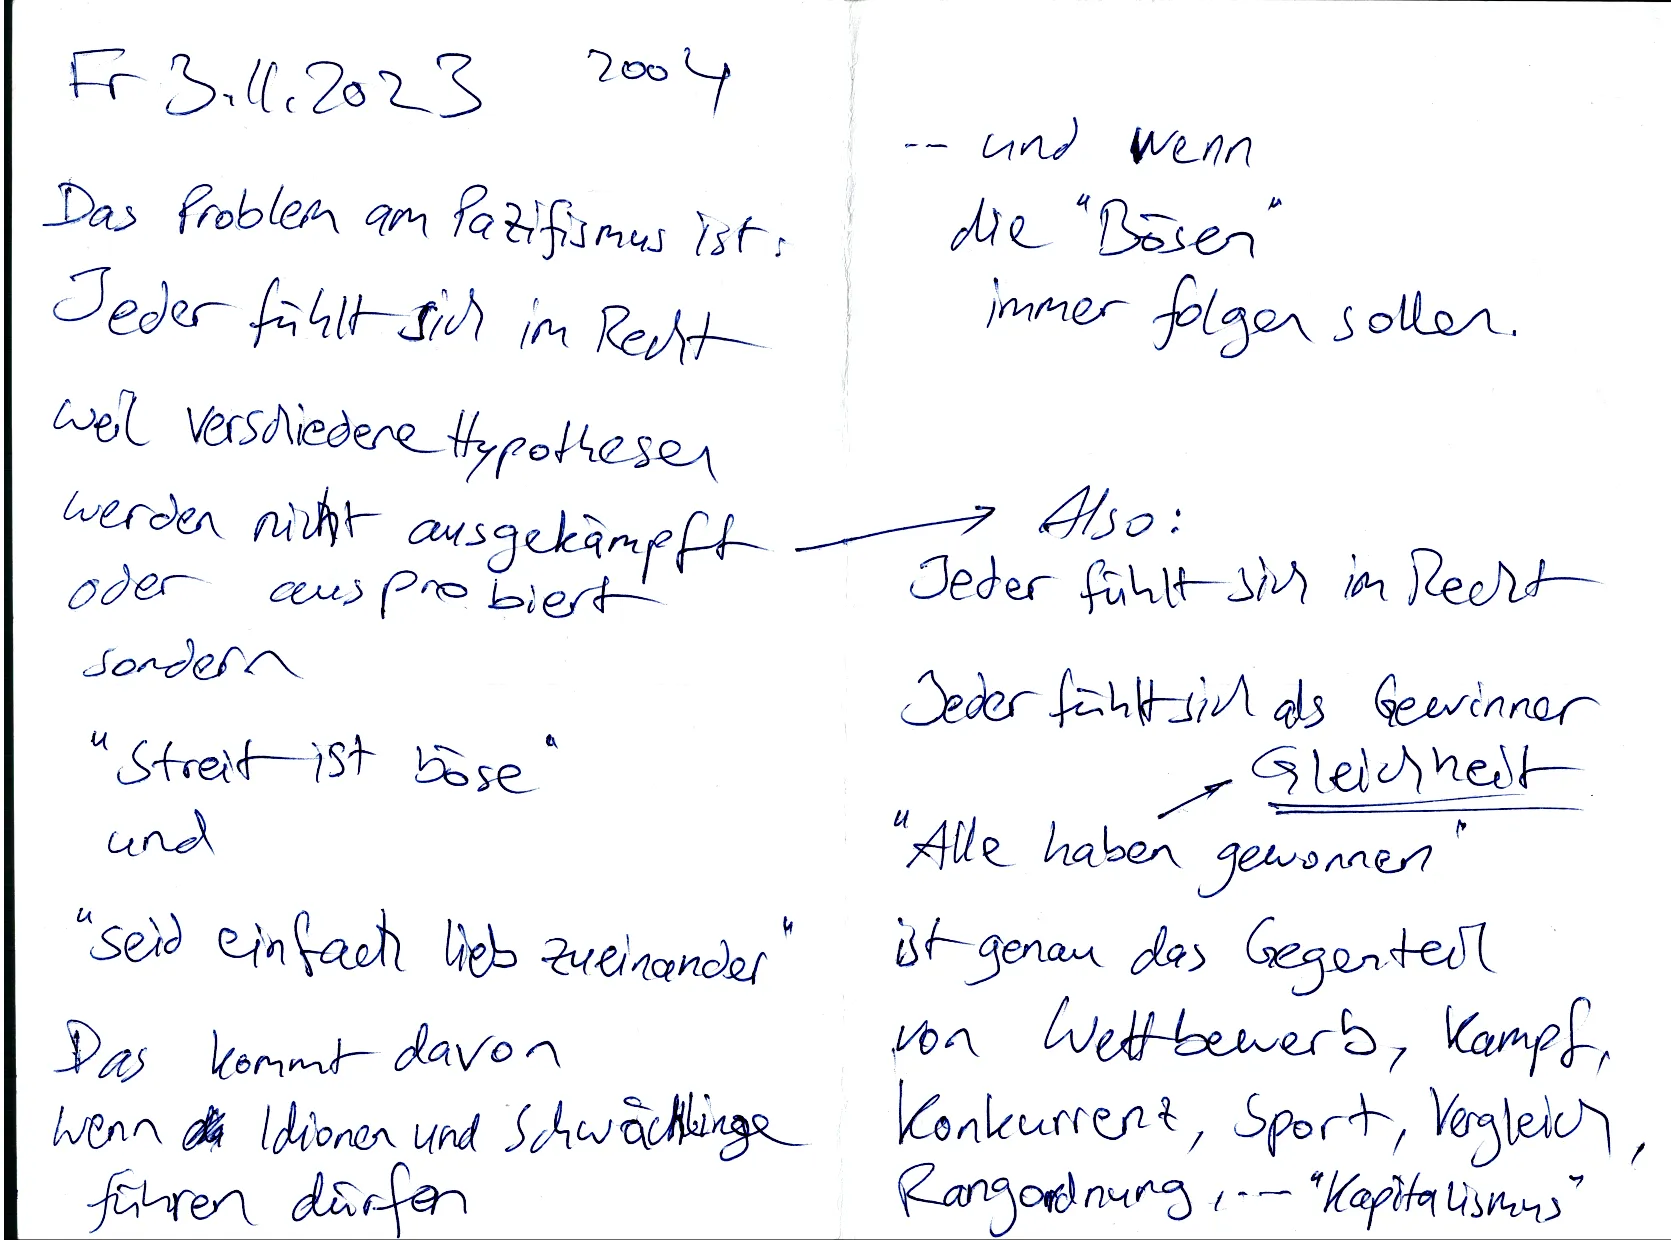 Fr 3.11.2023 2004
Das Problem am Pazifismus ist:
Jeder fühlt sich im Recht
weil verschiedene Hypothesen
werden nicht ausgekämpft
oder ausprobiert
sondern
"Streit ist böse"
und
"seid einfach lieb zueinander"
Das kommt davon
wenn Idionen und Schwächlinge
führen dürfen
-- und wenn
die "Bösen"
immer folgen sollen.
Also:
Jeder fühlt sich im Recht
Jeder fühlt sich als Gewinner
Gleichheit
"Alle haben gewonnen"
ist genau das Gegenteil
von Wettbewerb, Kampf,
Konkurrenz, Sport, Vergleich,
Rangordnung, --- "Kapitalismus"